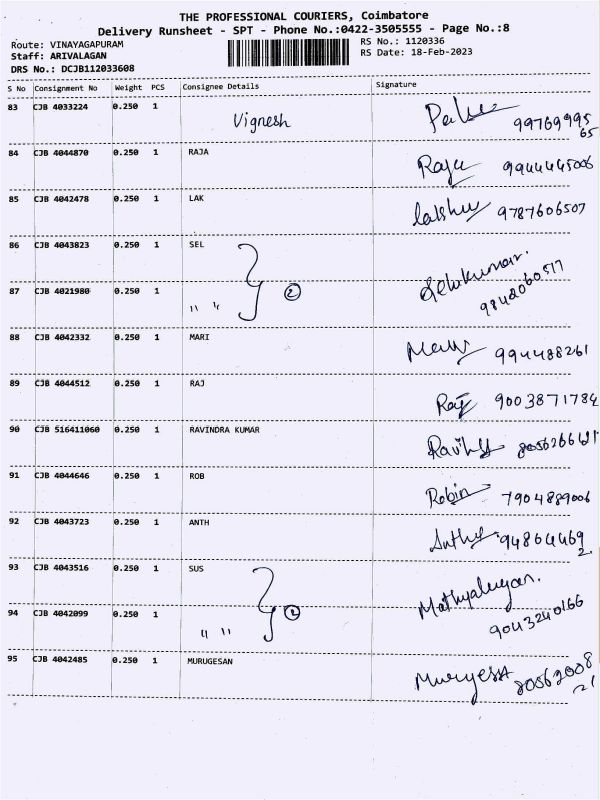 THE PROFESSIONAL COURIERS, Coimbatore
Delivery Runsheet - SPT - Phone No.:0422-3505555 - Page No.:8
Route: VINAYAGAPURAM RS No.: 1120336
Staff: ARIVALAGAN RS Date: 18-Feb-2023
DRS No.: DCJB112033608
S No Consignment No Weight PCS Consignee Details Signature
83 CJB 4033224 0.250 1 Vignesh 9976999565
84 CJB 4044870 0.250 1 RAJA Raja 9944445006
85 CJB 4042478 0.250 1 LAK 9787606507
86 CJB 4043823 0.250 1 SEL Selvkumar.
87 CJB 4021980 0.250 1 " " 2 9842060517
88 CJB 4042332 0.250 1 MARI 994488261
89 CJB 4044512 0.250 1 RAJ Raj 9003871784
90 CJB 516411060 0.250 1 RAVINDRA KUMAR
91 CJB 4044646 0.250 1 ROB Robin 7904889006
92 CJB 4043723 0.250 1 ANTH
93 CJB 4043516 0.250 1 SUS
94 CJB 4042099 0.250 1 " " 2 9043240166
95 CJB 4042485 0.250 1 MURUGESAN